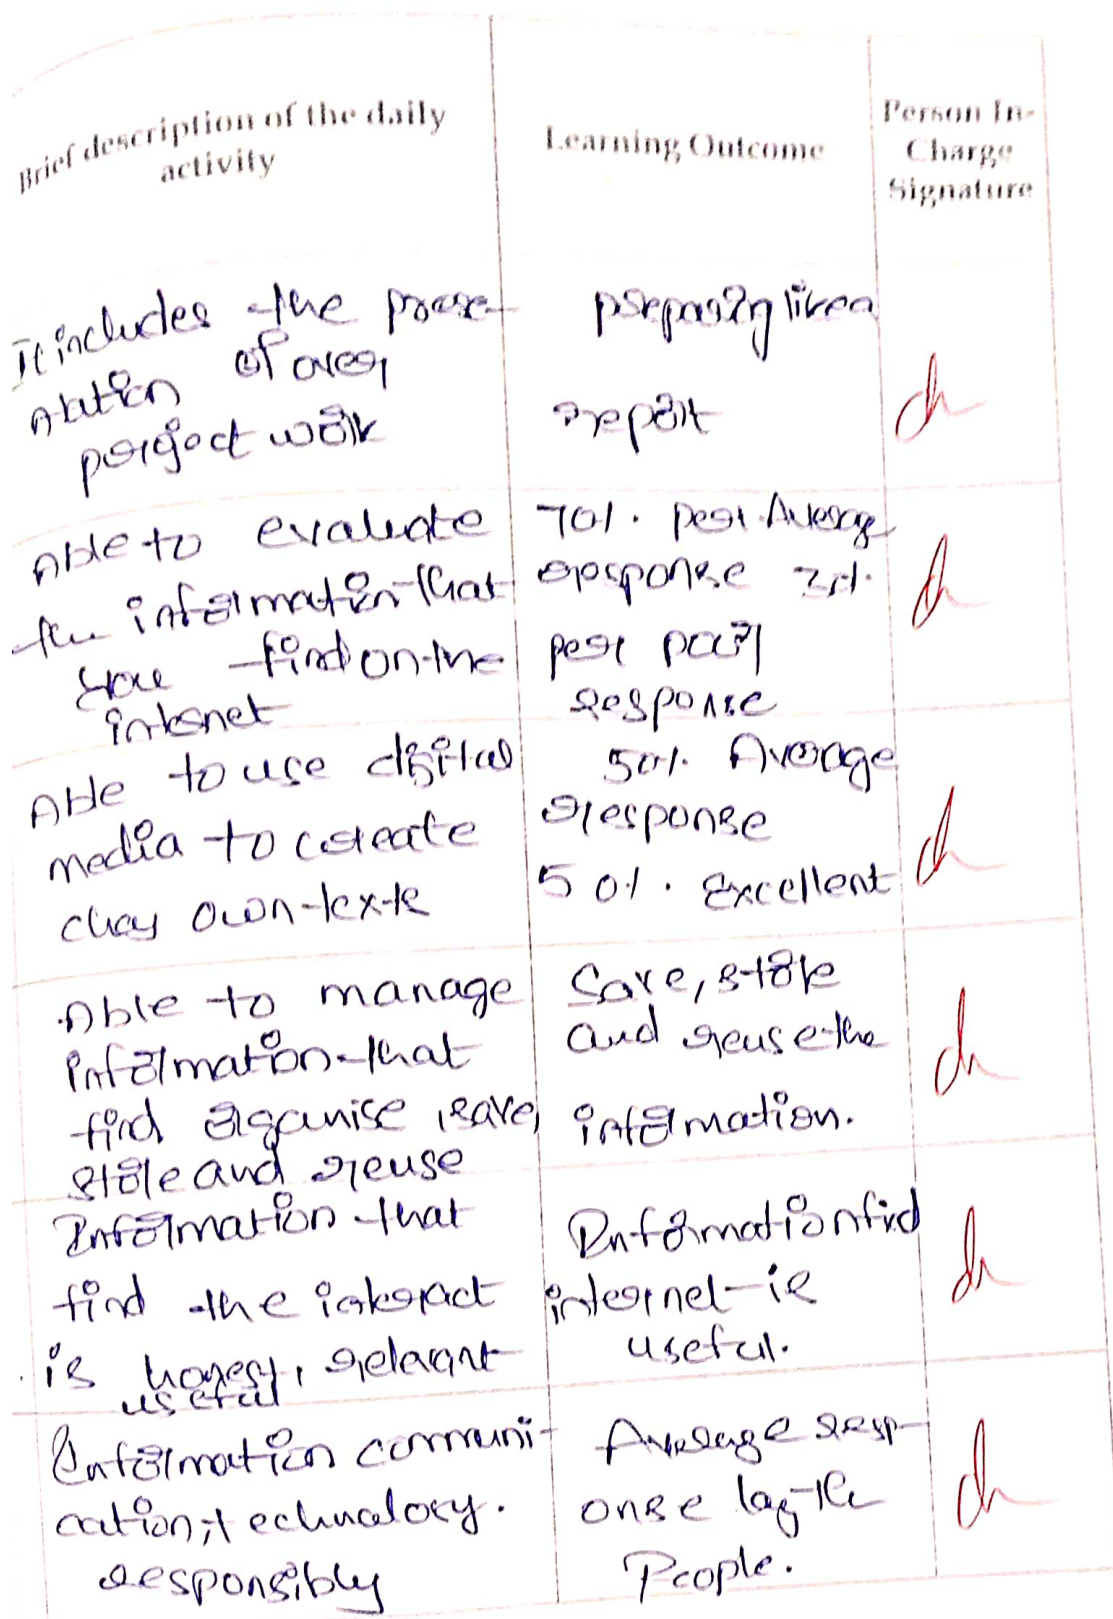 Brief description of the daily
activity
Learning Outcome
Person In-
Charge
Signature
It includes the prese-
ntation of over
project work
preparing
report
Able to evaluate
the information that
you find on the
internet
70%. per Average
response
per poor
response
Able to use digital
media to create
own texts
50%. Average
response
50%. Excellent
Able to manage
information that
find organise, save,
store and reuse
Save, store
and reuse the
information.
Information that
find the interact
is honest, relavant
useful
Information find
internet is
useful.
Information communi-
cation, technology.
responsibly
Average resp-
onse
People.